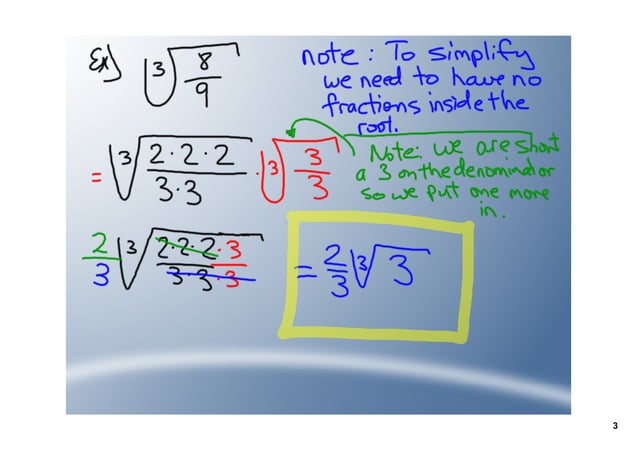 Ex) ∛(8/9)
note: To simplify
we need to have no
fractions inside the
root.
= ∛((2·2·2)/(3·3)) · ∛(3/3)
Note: we are short
a 3 on the denominator
so we put one more
in.
2/3 ∛((2·2·2·3)/(3·3·3)) = 2/3 ∛3
3